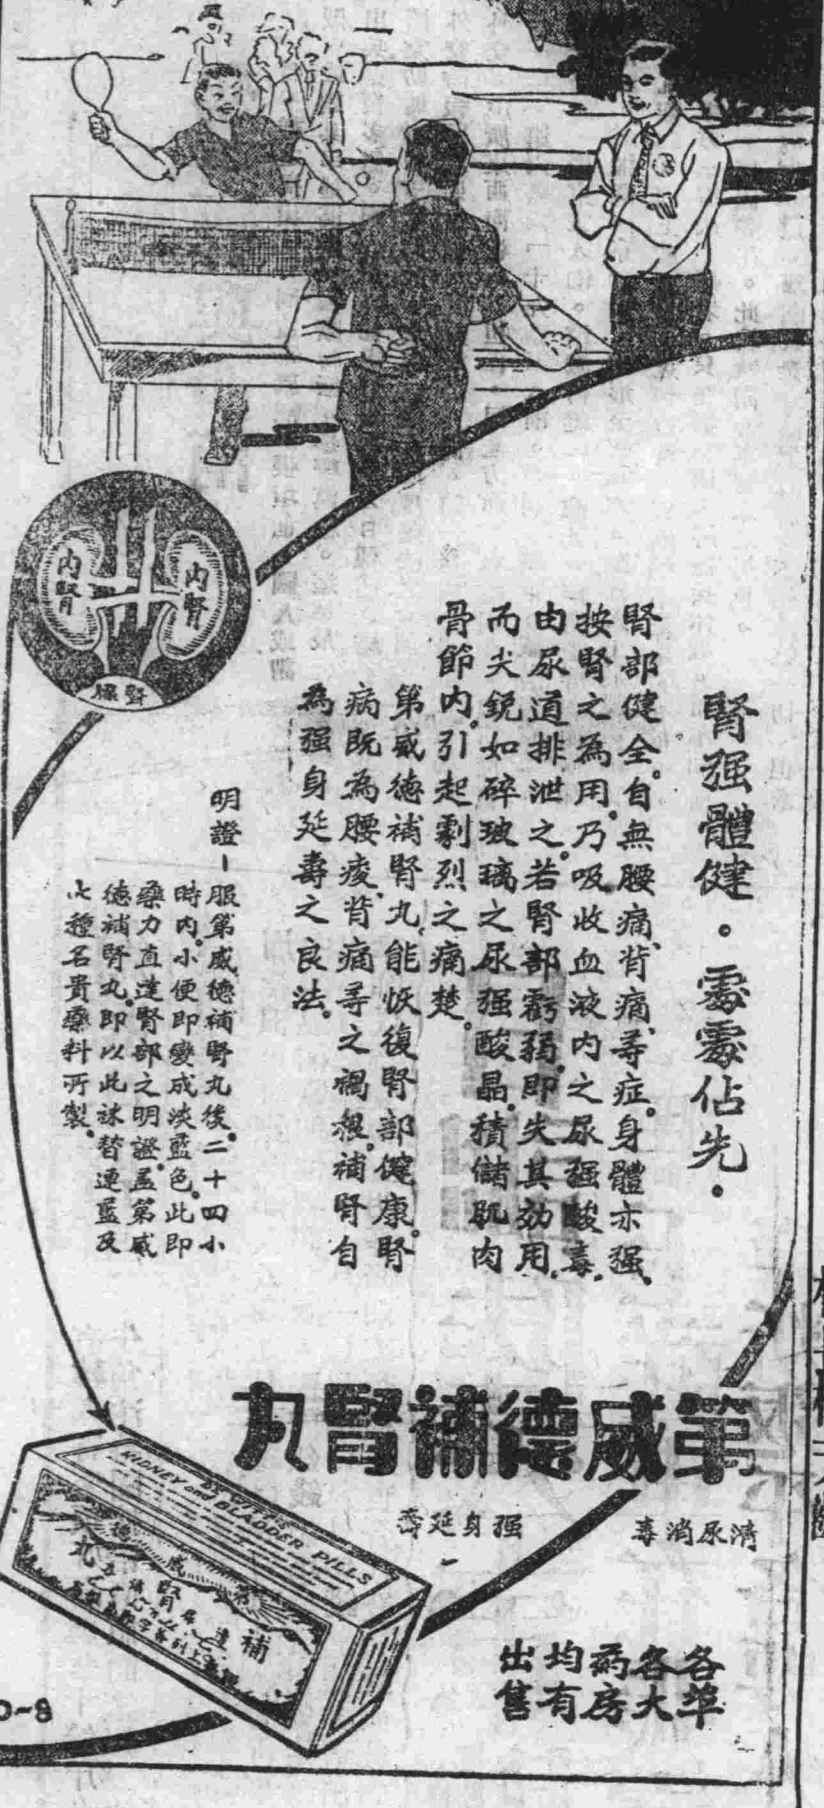 內腎
內腎
腎强體健。處處佔先。
腎部健全。自無腰痛、背痛、等症。身體亦强。
按腎之為用。乃吸收血液內之尿强酸毒。
由尿道排泄之。若腎部虧弱。即失其効用。
而尖銳如碎玻璃之尿强酸晶。積儲肌肉
骨節內。引起劇烈之痛楚。
第威德補腎丸。能恢復腎部健康。腎
病既為腰痠、背痛等之禍根。補腎自
為强身延壽之良法。
明證－服第威德補腎丸後。二十四小
時內。小便即變成淡藍色。此即
藥力直達腎部之明證。蓋第威
德補腎丸。即以此味替連藍及
七種名貴藥料所製。
第威德補腎丸
清尿消毒
强身延壽
DE WITT'S
KIDNEY and BLADDER PILLS
各埠
各大
葯房
均有
出售
D-8